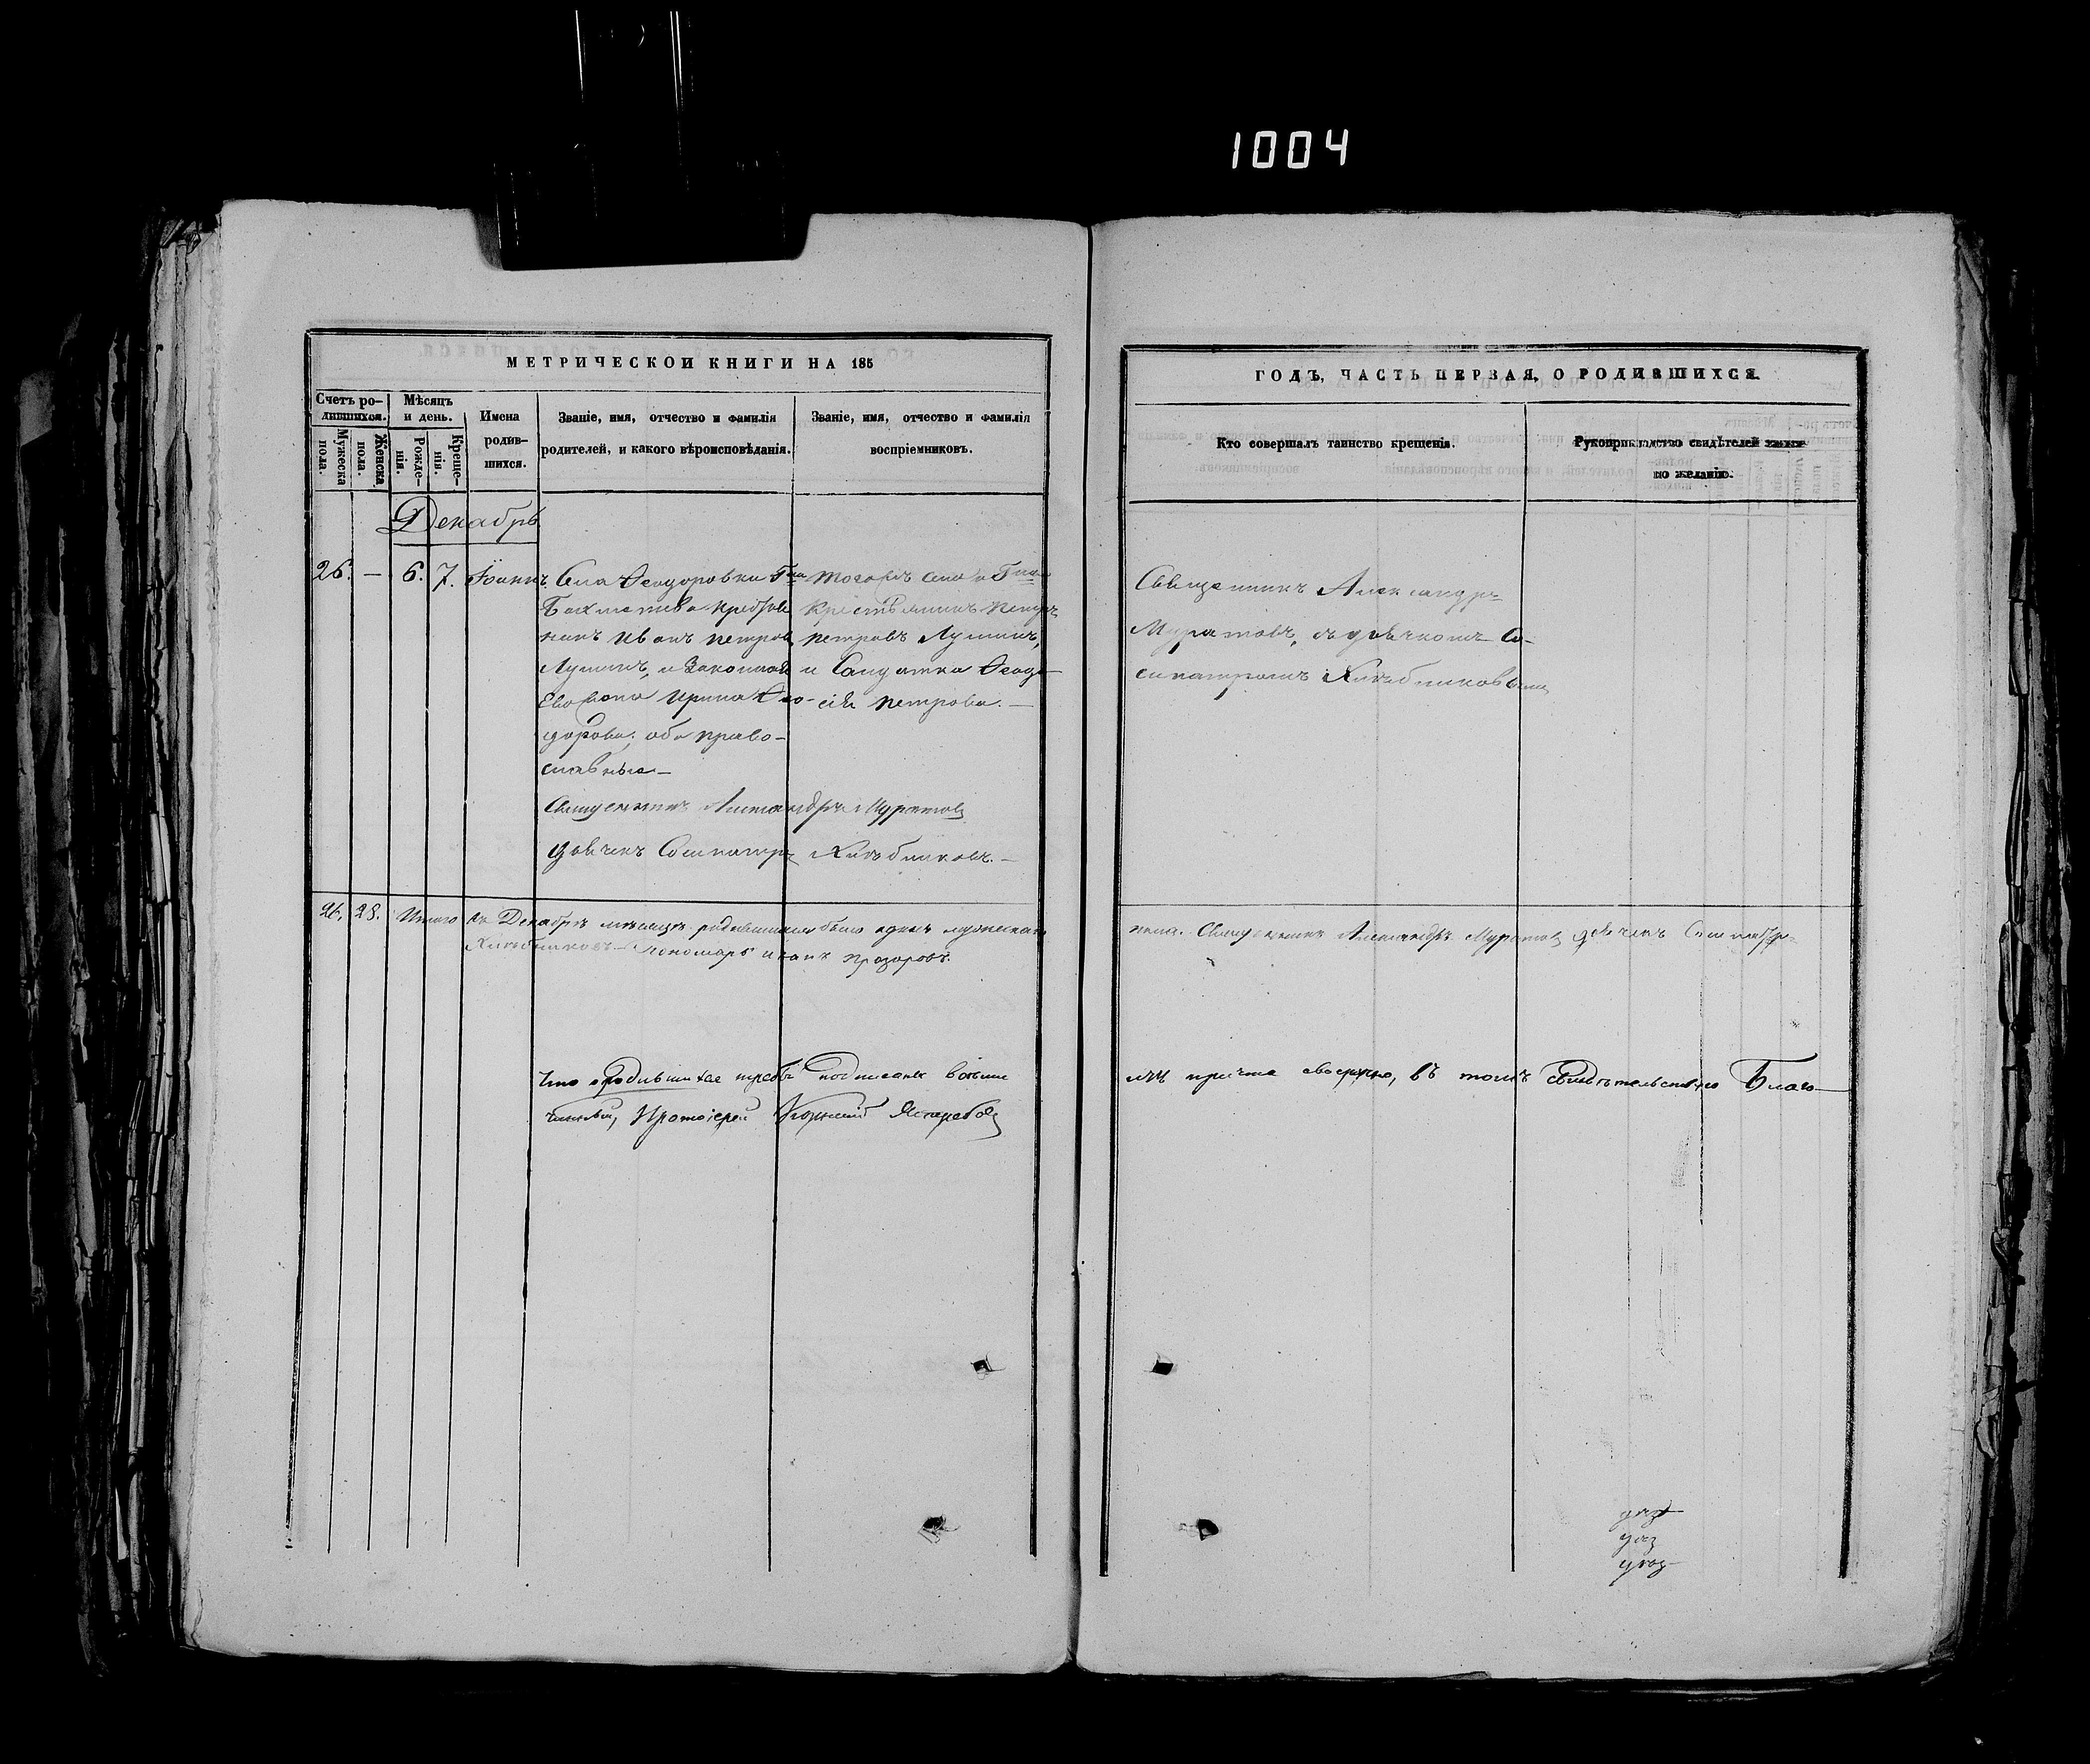 1004
МЕТРИЧЕСКОЙ КНИГИ НА 185
Счетъ ро-
дившихся.
Мужеска
пола.
Женска
пола.
Мѣсяцъ
и день.
Рожде-
нія.
Креще-
нія.
Имена
родив-
шихся.
Званіе, имя, отчество и фамилія
родителей, и какого вѣроисповѣданія.
Званіе, имя, отчество и фамилія
воспріемниковъ.
Декабрь
26. — 6. 7. Іоаннъ
Села Ѳеодоровки Гна
Бахметева
нинъ Иванъ Петровъ
Лушинъ, и Законная
Его жена Ирина Ѳео-
дорова, оба право-
славные —
Тогожъ села и Гна
Крестьянинъ Петръ
Петровъ Лушинъ,
и Солдатка Ѳеодо-
сія Петрова. —
Священникъ Александръ Муратовъ
Дьячекъ Сосипатръ Хлѣбниковъ. —
26. 28. Итого въ Декабрѣ мѣсяцѣ родившихся было одинъ мужеска
Хлѣбниковъ — Пономарь Иванъ Прозоровъ.
Что о родившихся
чинный, Протоіерей Ястребовъ
ГОДЪ, ЧАСТЬ ПЕРВАЯ, О РОДИВШИХСЯ.
Кто совершалъ таинство крещенія.
Рукоприкладство свидѣтелей
по желанію.
Священникъ Александръ
Муратовъ, съ дьячкомъ Со-
сипатромъ Хлѣбниковымъ
пола. Священникъ Александръ Муратовъ Дьячекъ Сосипатръ
причта своеручно, въ томъ свидѣтельствую Благо-